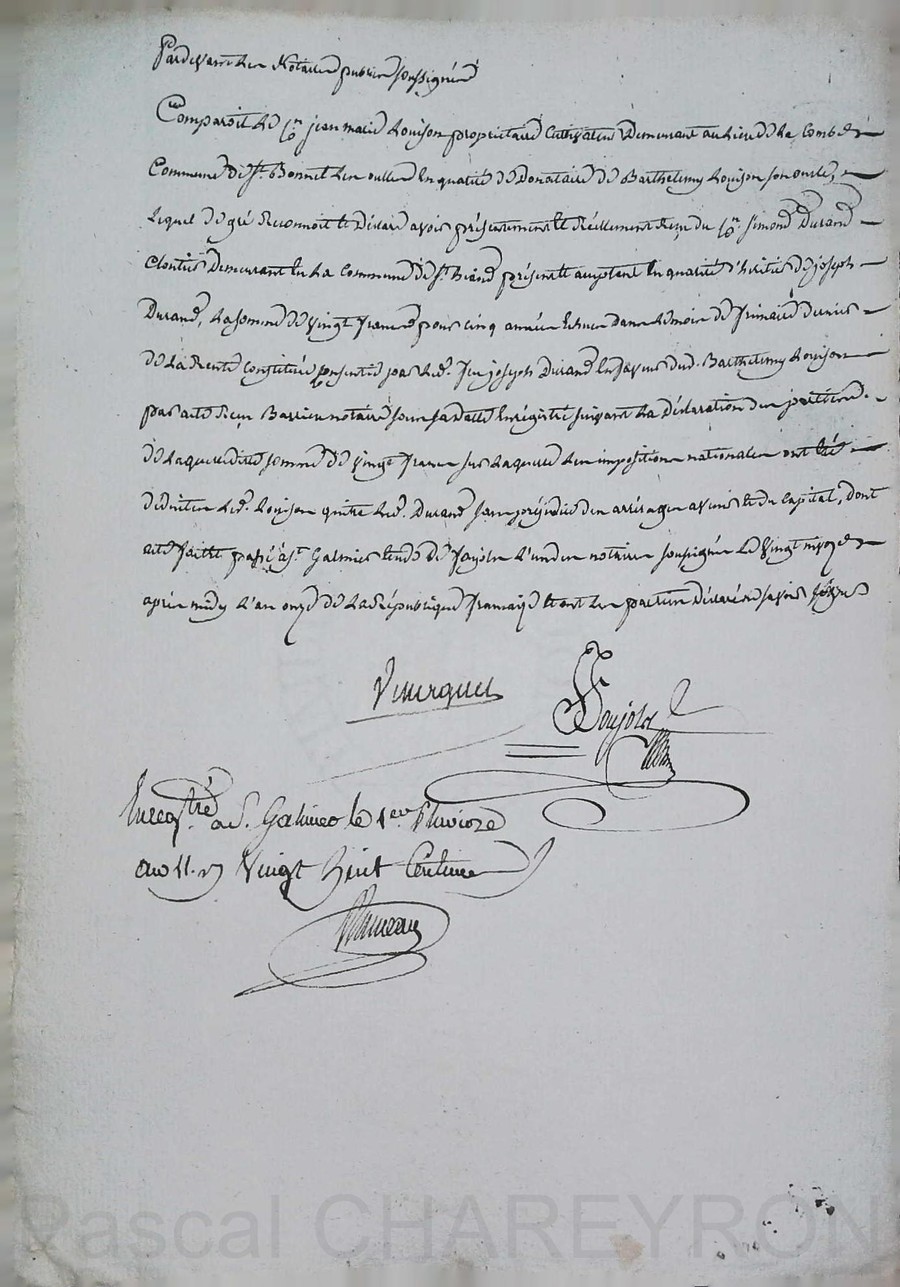 Pardevant les Notaires publics soussignés
Comparoit le Cn. jean marie Louison propriétaire Cultivateur Demeurant au Lieu de La Combe
Commune de St. Bonnet Les oulles En qualité de Donataire de Barthelemy Louison son oncle,
Lequel de gré Reconnoit et Déclare avoir présentement et Réellement Reçu du Cn. Simond Durand
Cloutier Demeurant En La Commune de St. présent et acceptant En qualité d'héritier de joseph
Durand, La somme de vingt francs pour cinq années Echues dans Le mois de frimaire dernier
de La Rente Constituée consentie par Led. feu joseph Durand En faveur dud. Barthelemy Louison
par acte Reçu Barrieu notaire sous sa datte Enregistré suivant La Déclaration des parties.
de Laquelle ditte somme de vingt francs sur Laquelle Les impositions nationales ont été
déduites Led. Louison quitte Led. Durand sans préjudice des arrérages avenir et du Capital, Dont
acte fait et passé à St. Galmier Etude de Foujols L'un des notaires soussignés Le vingt nivose
après midy L'an onze de La République française et ont Les parties Déclaré ne savoir signer
Foujols
Enregtré. a St. Galmier le 1er. Pluviose
an 11. r. Vingt huit Centimes
Pascal CHAREYRON